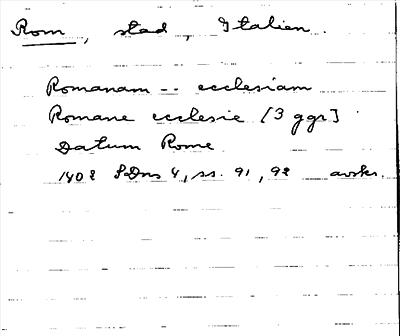 Rom, stad, Italien.
Romanam -- ecclesiam
Romane ecclesie [3 ggr]
Datum Rome
1402 SDns 4, ss. 91, 92 avskr.